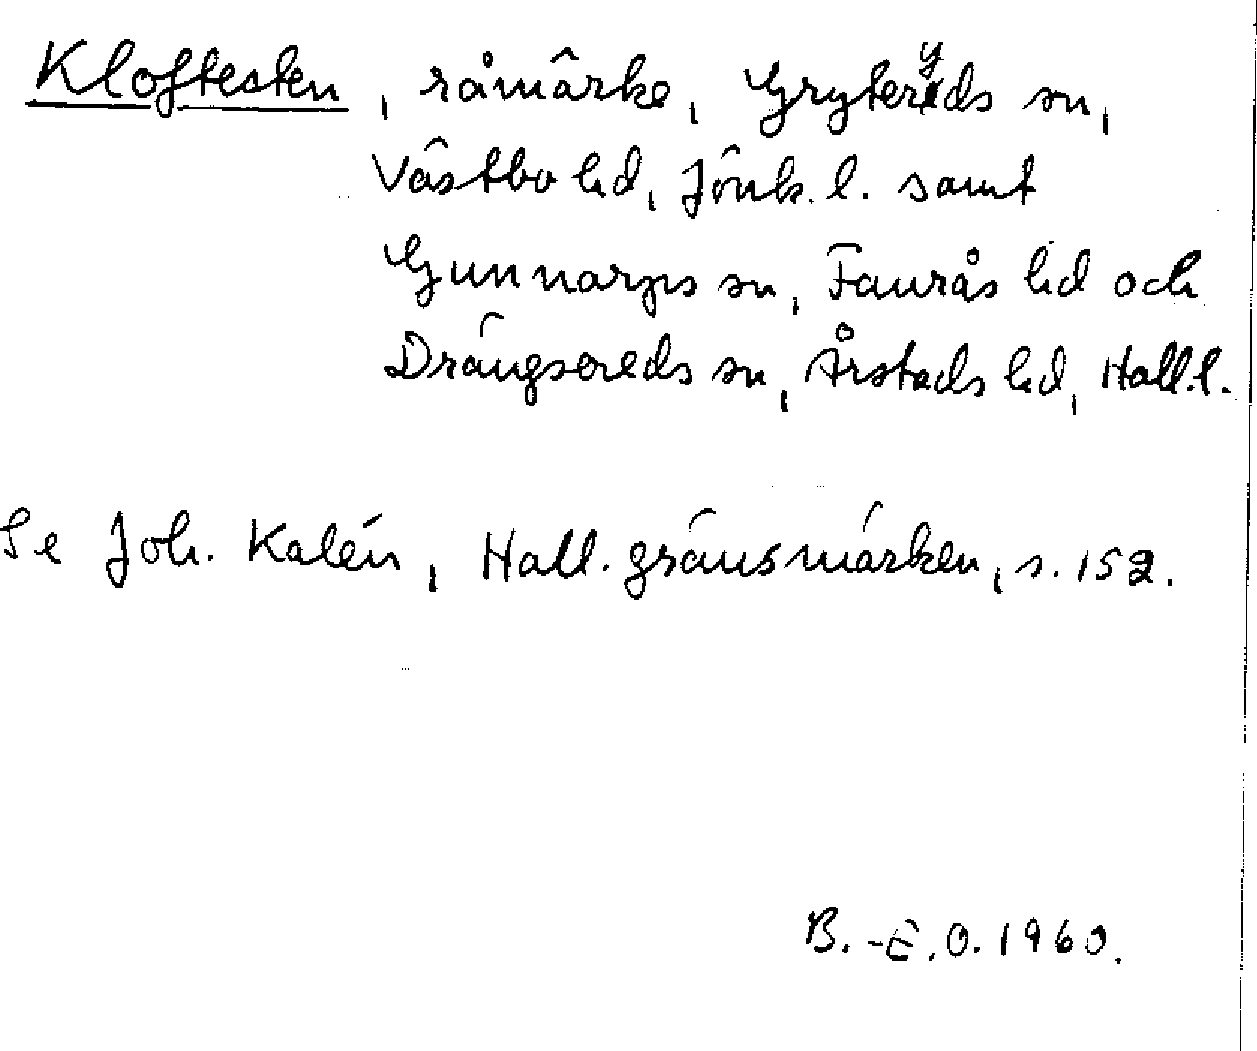 Kloftesten, råmärke, Gryteryds sn,
Västbo hd, Jönk. l. samt
Gunnarps sn, Faurås hd och
Drängsereds sn, Årstads hd, Hall. l.
Se Joh. Kalén, Hall. gränsmärken, s. 152.
B.-E. O. 1960.